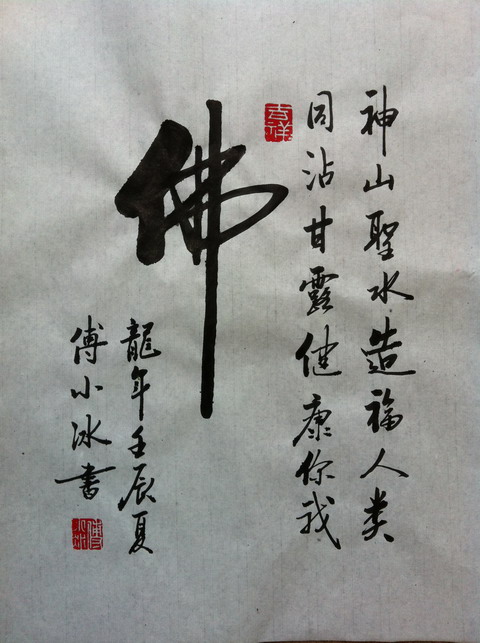 神山聖水造福人类
同沾甘露健康你我
吉祥
佛
龍年壬辰夏
傅小冰書
傅小冰